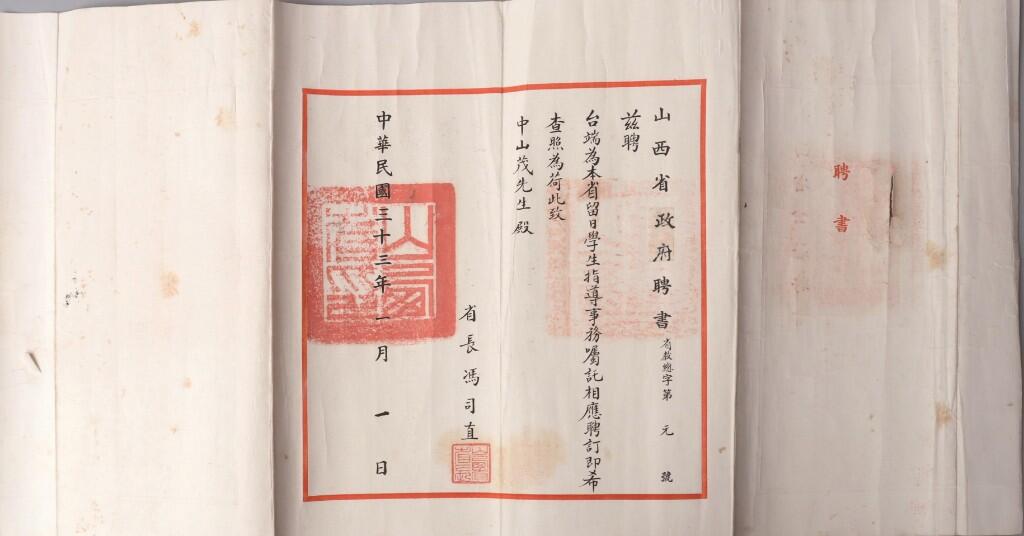 聘書
山西省政府聘書 省教總字第 元 號
茲聘
台端為本省留日學生指導事務囑託相應聘訂即希
查照為荷此致
中山茂先生殿
省長馮司直
中華民國三十三年一月一日